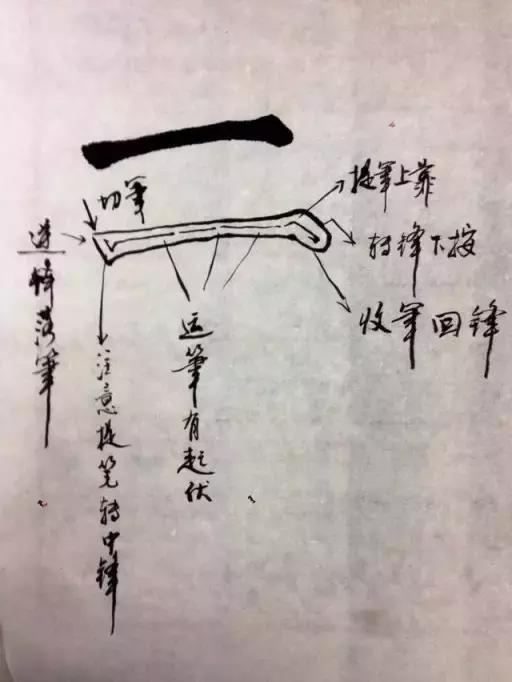 一
切筆
提筆上靠
转锋下按
收筆回锋
逆锋落筆
注意提笔转中锋
运筆有起伏